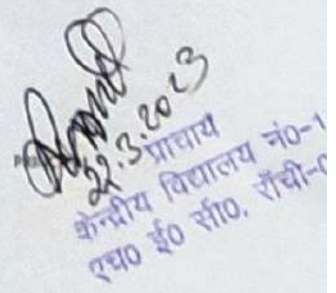 22.3.2023
प्राचार्य
केन्द्रीय विद्यालय नं०-1
एच० ई० सी०, राँची-